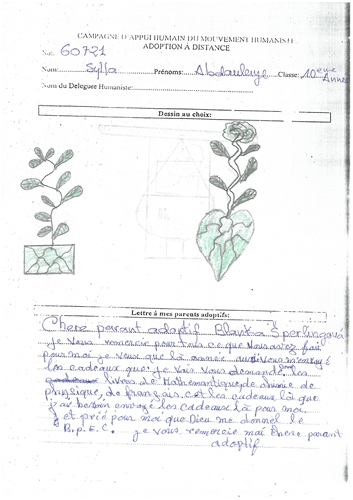 CAMPAGNE D'APPUI HUMAIN DU MOUVEMENT HUMANISTE
ADOPTION À DISTANCE
No: 60721
Nom: Sylla Prénoms: Abdoulaye Classe: 10eme Année
Nom du Delegue Humaniste:
Dessin au choix:
Lettre à mes parents adoptifs:
Chere parant adoptif Blanka Sperlingova
je vous remercie pour tous ce que vous avez fait
pour moi je veux que là année vous m'envoyé
les cadeaux que je vais vous demandé les
livres de Mathématique, de chimie de
physique, de français c'et les cadeaux là que
j'ai besoin envoyé les cadeaux là pour moi
et prié pour moi que Dieu me donnel le
B.P.E.C. je vous remercie moi chere parant
adoptif